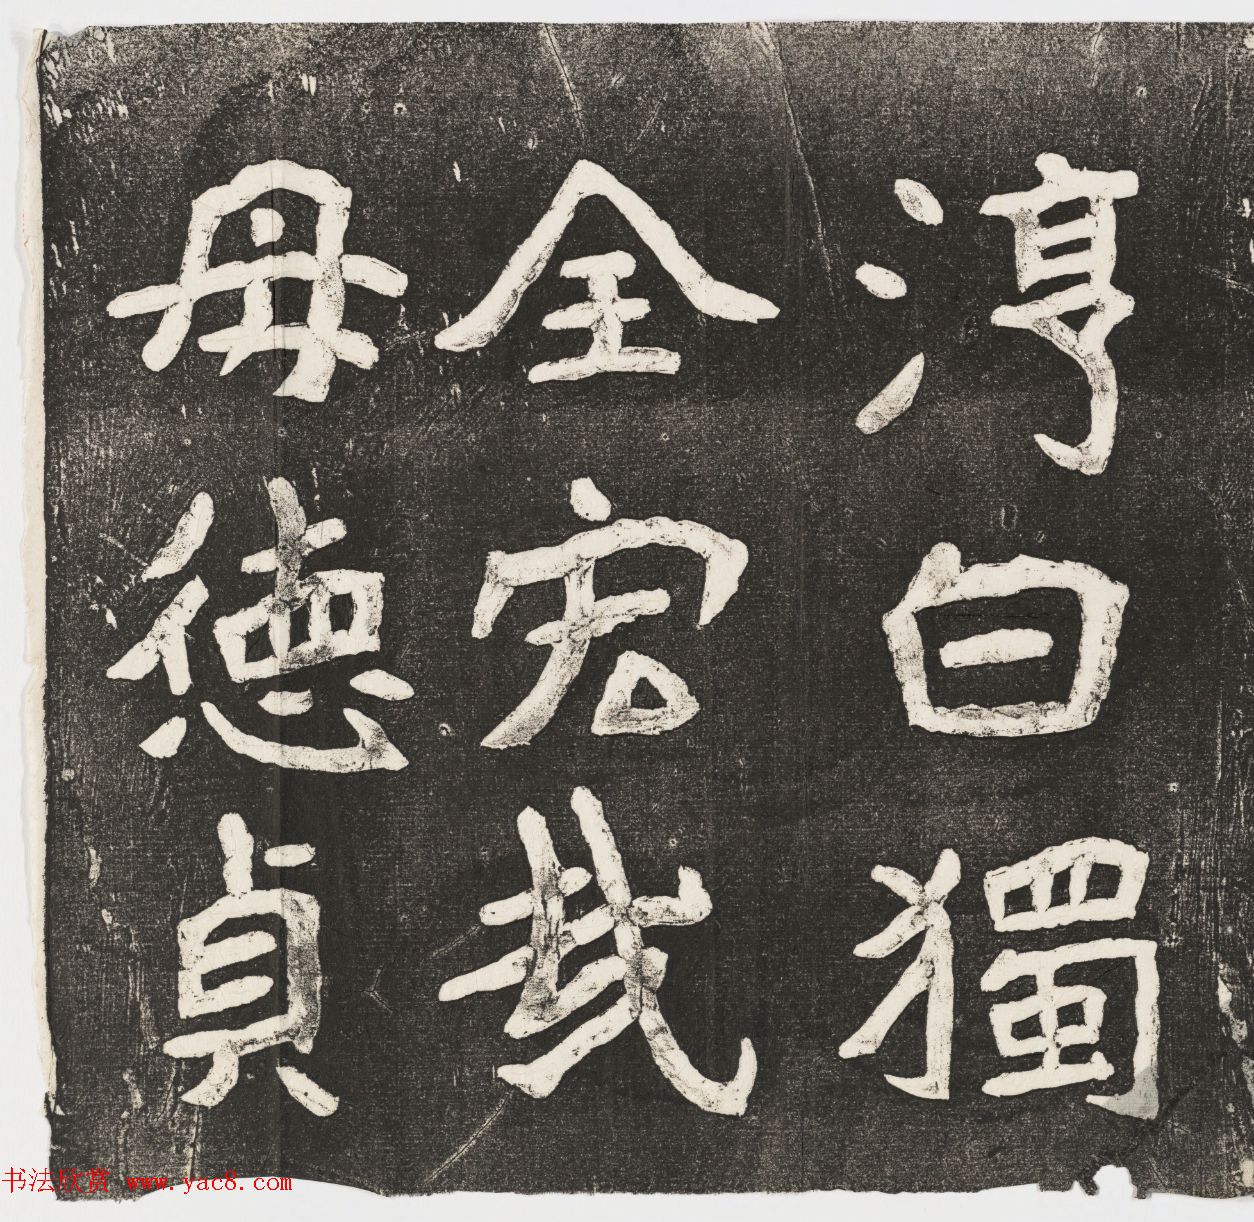 淳白獨
全宏我
母德貞
书法欣赏 www.yac8.com